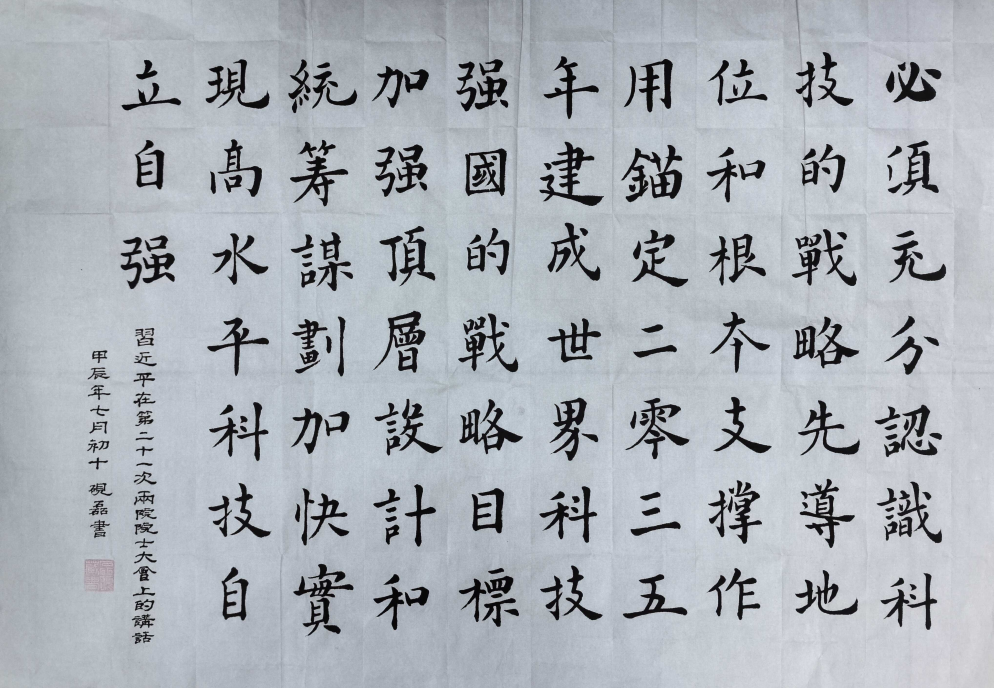 必須充分認識科
技的戰略先導地
位和根本支撐作
用錨定二零三五
年建成世界科技
强國的戰略目標
加强頂層設計和
統籌謀劃加快實
現高水平科技自
立自强
習近平在第二十一次兩院院士大會上的講話
甲辰年七月初十 硯磊書